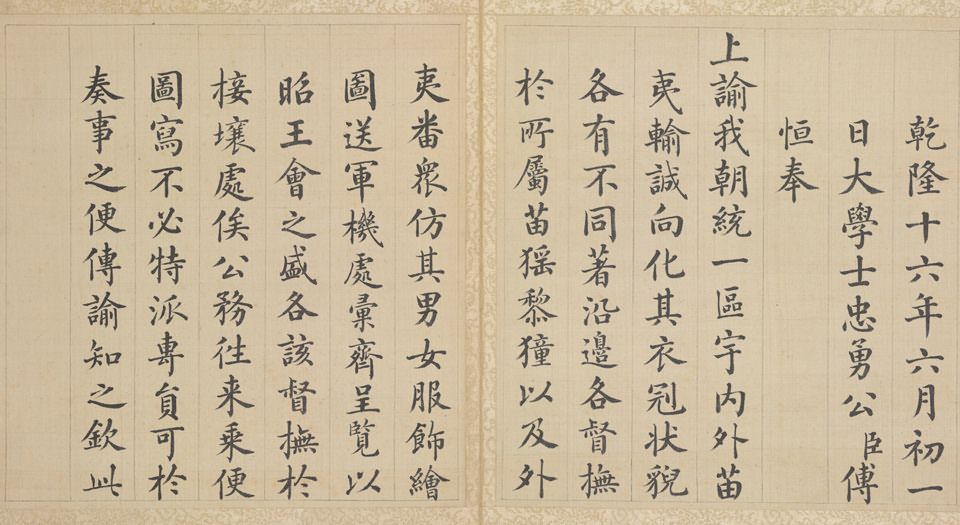 乾隆十六年六月初一
日大學士忠勇公臣傅
恒奉
上諭我朝統一區宇内外苗
夷輸誠向化其衣冠状貌
各有不同著沿邊各督撫
於所屬苗猺黎獞以及外
夷番衆仿其男女服飾繪
圖送軍機處彙齊呈覽以
昭王會之盛各該督撫於
接壤處俟公務往来乘便
圖寫不必特派專員可於
奏事之便傳諭知之欽此